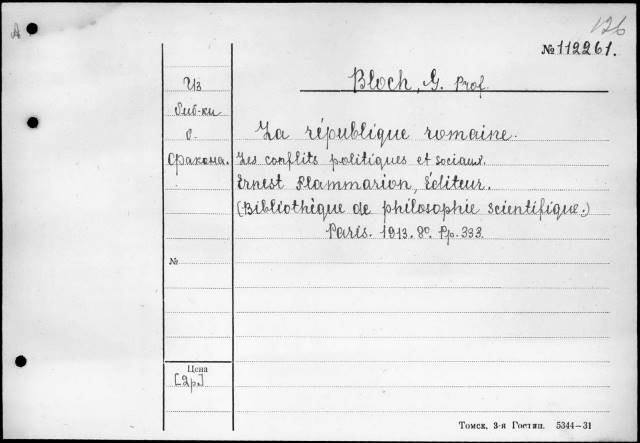 A
126
№112261.
Bloch, G. Prof.
Из
биб-ки
о.
Сракона.
La république romaine.
Les conflits politiques et sociaux.
Ernest Flammarion, Éditeur.
(Bibliothèque de philosophie scientifique.)
Paris. 1913. 8º. Pp. 333.
№
Цена
[2р.]
Томск, 3-я Гостип. 5344—31